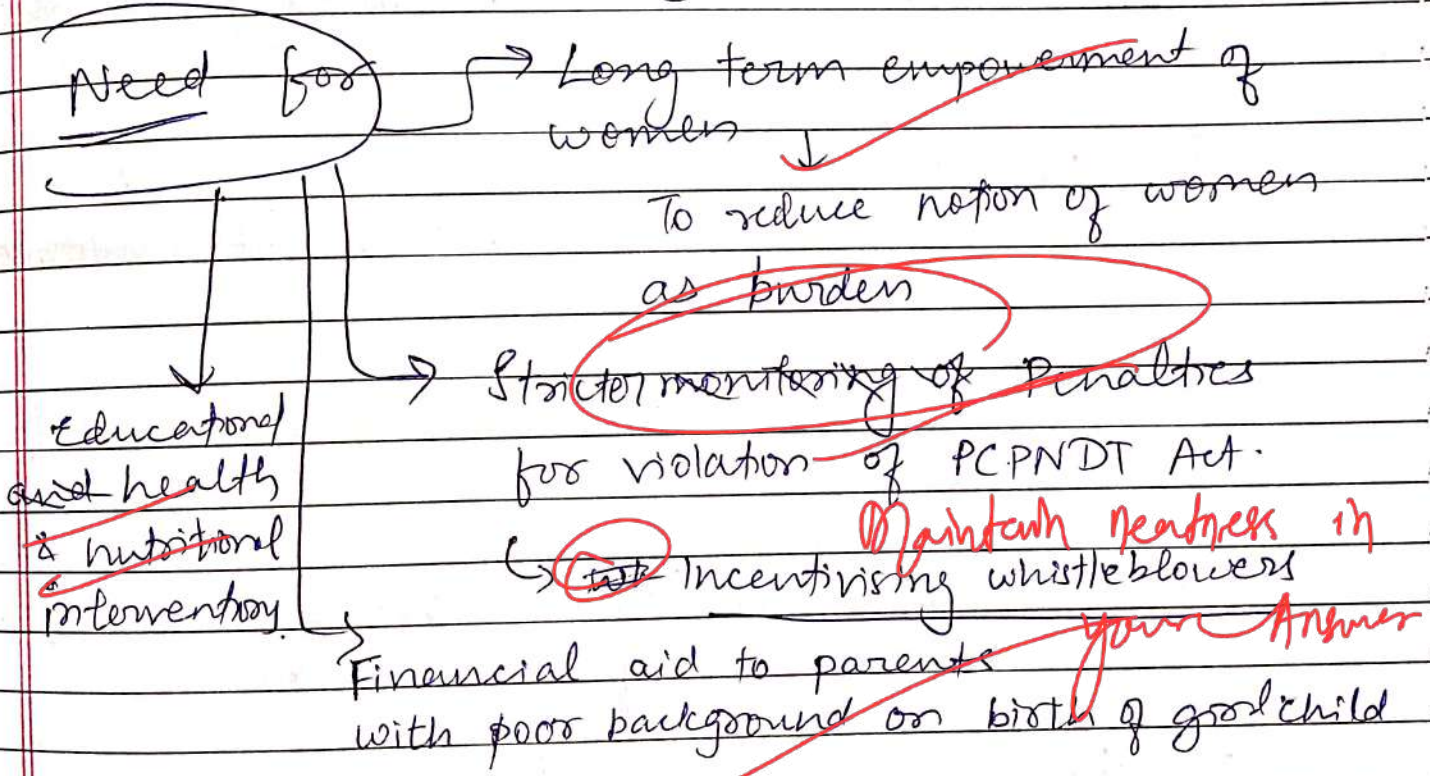 Need for
Long term empowerment of
women
To reduce notion of women
as burden
Stricter monitoring of Penalties
for violation of PCPNDT Act.
Maintain neatness in
Incentivising whistleblowers
your Answer
Educational
and health
& nutritional
intervention.
Financial aid to parents
with poor background on birth of girl child